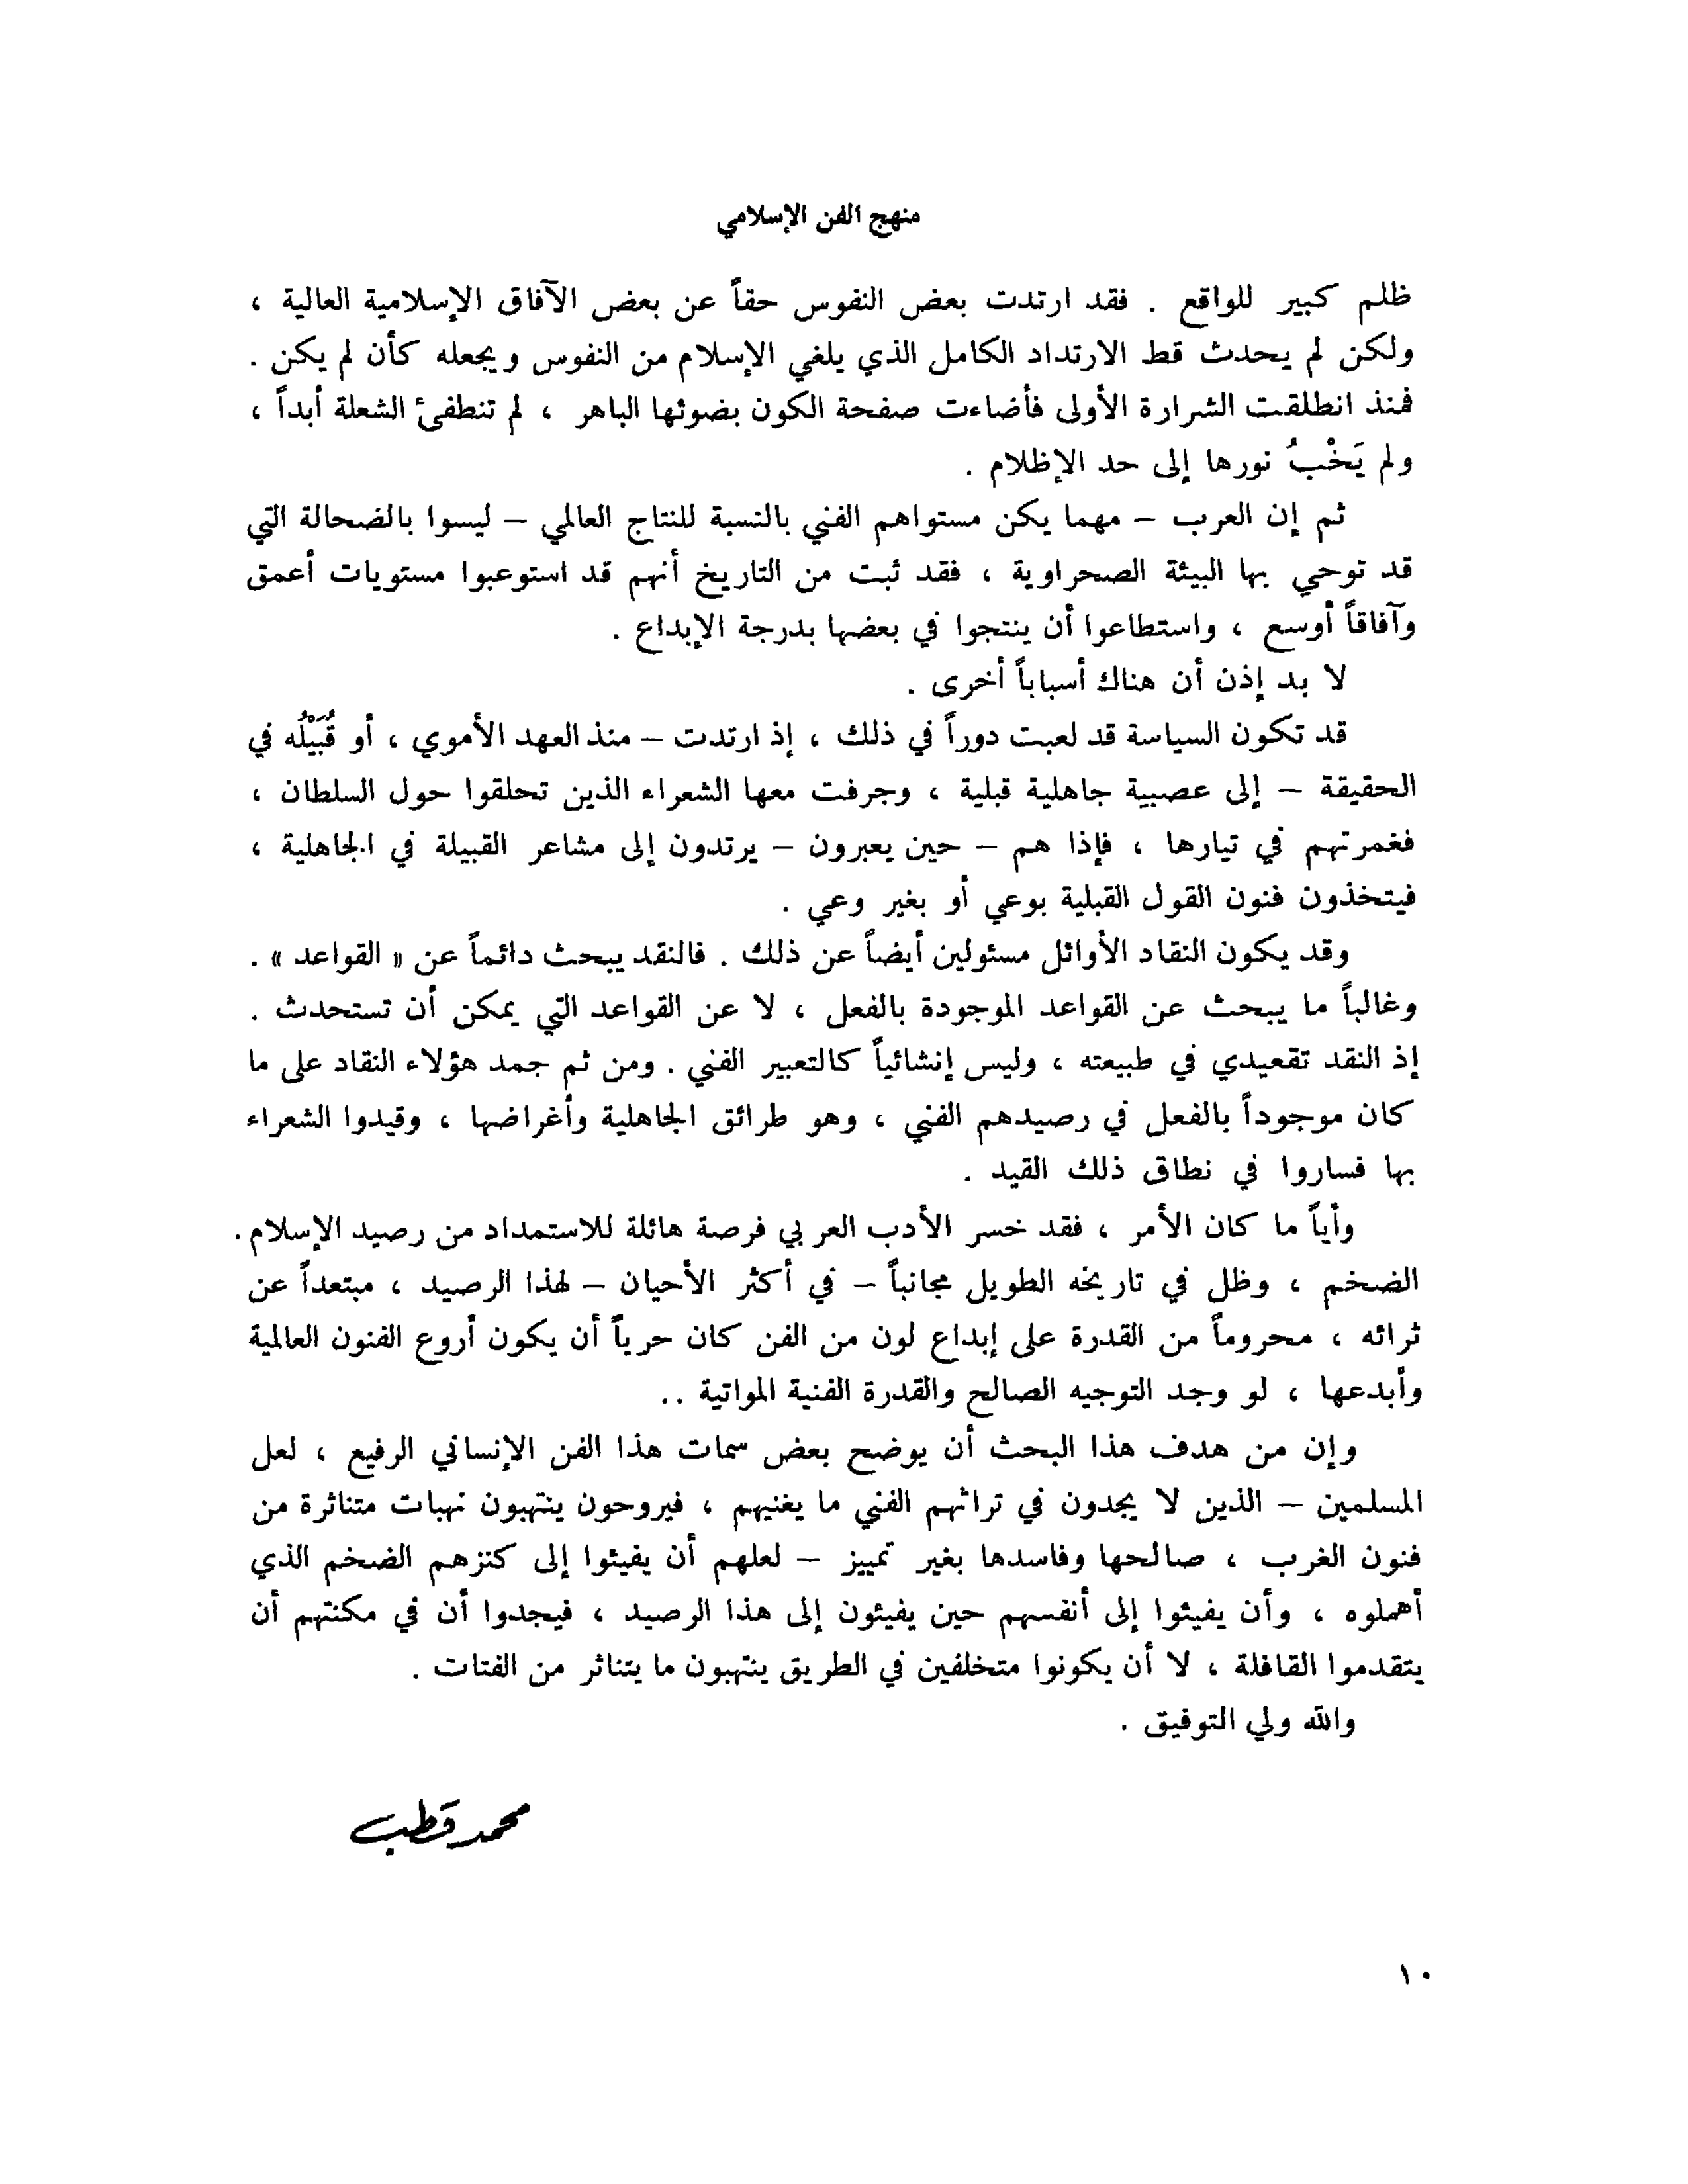 منهج الفن الإسلامي
ظلم كبير للواقع . فقد ارتدت بعض النفوس حقاً عن بعض الآفاق الإسلامية العالية ،
ولكن لم يحدث قط الارتداد الكامل الذي يلغي الإسلام من النفوس ويجعله كأن لم يكن .
فمنذ انطلقت الشرارة الأولى فأضاءت صفحة الكون بضوئها الباهر ، لم تنطفئ الشعلة أبداً ،
ولم يَخْبُ نورها إلى حد الإظلام .
ثم إن العرب – مهما يكن مستواهم الفني بالنسبة للنتاج العالمي – ليسوا بالضحالة التي
قد توحي بها البيئة الصحراوية ، فقد ثبت من التاريخ أنهم قد استوعبوا مستويات أعمق
وآفاقاً أوسع ، واستطاعوا أن ينتجوا في بعضها بدرجة الإبداع .
لا بد إذن أن هناك أسباباً أخرى .
قد تكون السياسة قد لعبت دوراً في ذلك ، إذ ارتدت – منذ العهد الأموي ، أو قُبَيْلُه في
الحقيقة – إلى عصبية جاهلية قبلية ، وجرفت معها الشعراء الذين تحلقوا حول السلطان ،
فغمرتهم في تيارها ، فإذا هم – حين يعبرون – يرتدون إلى مشاعر القبيلة في الجاهلية ،
فيتخذون فنون القول القبلية بوعي أو بغير وعي .
وقد يكون النقاد الأوائل مسئولين أيضاً عن ذلك . فالنقد يبحث دائماً عن « القواعد » .
وغالباً ما يبحث عن القواعد الموجودة بالفعل ، لا عن القواعد التي يمكن أن تستحدث .
إذ النقد تقعيدي في طبيعته ، وليس إنشائياً كالتعبير الفني . ومن ثم جمد هؤلاء النقاد على ما
كان موجوداً بالفعل في رصيدهم الفني ، وهو طرائق الجاهلية وأغراضها ، وقيدوا الشعراء
بها فساروا في نطاق ذلك القيد .
وأياً ما كان الأمر ، فقد خسر الأدب العربي فرصة هائلة للاستمداد من رصيد الإسلام .
الضخم ، وظل في تاريخه الطويل مجانباً – في أكثر الأحيان – لهذا الرصيد ، مبتعداً عن
ثرائه ، محروماً من القدرة على إبداع لون من الفن كان حرياً أن يكون أروع الفنون العالمية
وأبدعها ، لو وجد التوجيه الصالح والقدرة الفنية المواتية ..
وإن من هدف هذا البحث أن يوضح بعض سمات هذا الفن الإنساني الرفيع ، لعل
المسلمين – الذين لا يجدون في تراثهم الفني ما يغنيهم ، فيروحون ينتهبون نهبات متناثرة من
فنون الغرب ، صالحها وفاسدها بغير تمييز – لعلهم أن يفيئوا إلى كنزهم الضخم الذي
أهملوه ، وأن يفيئوا إلى أنفسهم حين يفيئون إلى هذا الرصيد ، فيجدوا أن في مكنتهم أن
يتقدموا القافلة ، لا أن يكونوا متخلفين في الطريق ينتهبون ما يتناثر من الفتات .
والله ولي التوفيق .
محمد قطب
١٠